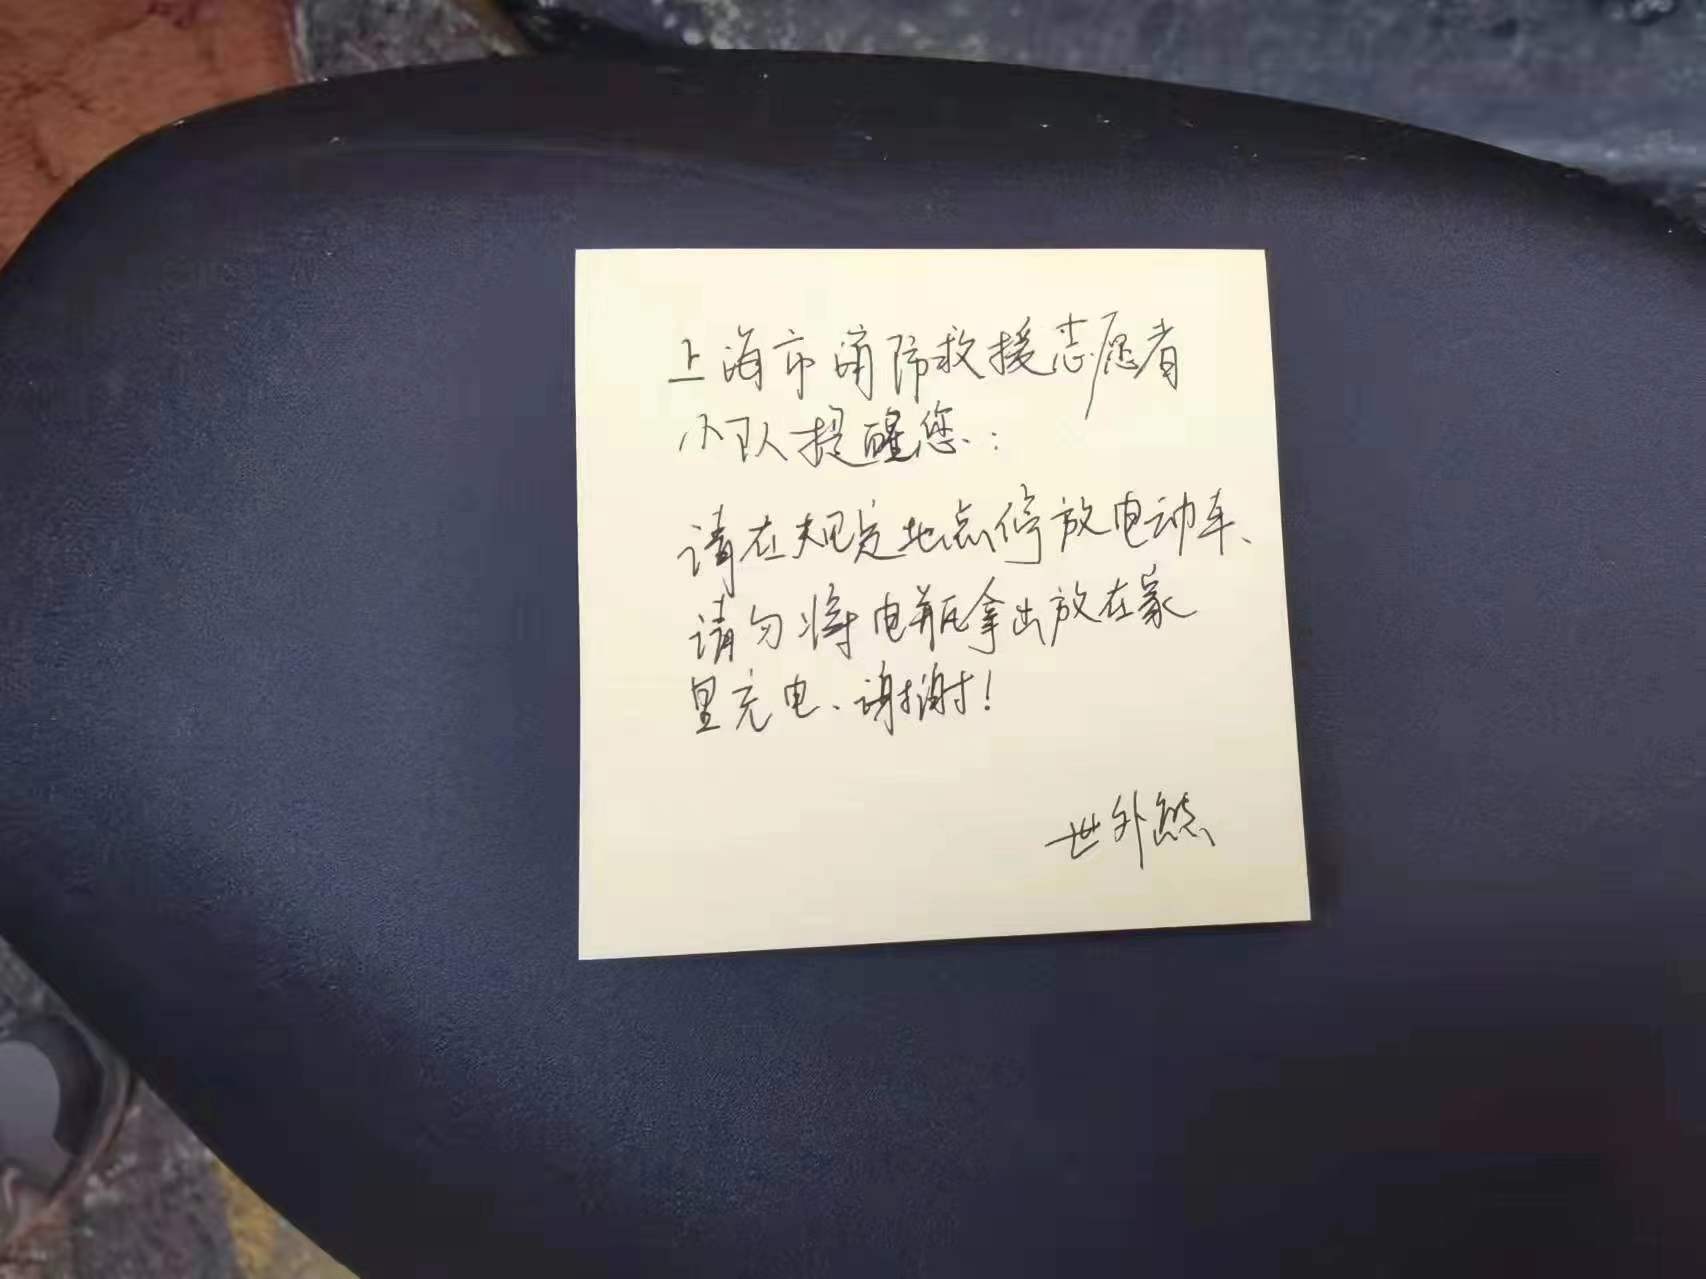 上海市消防救援志愿者
小队提醒您：
请在规定地点停放电动车、
请勿将电瓶拿出放在家
里充电、谢谢！
世外熊